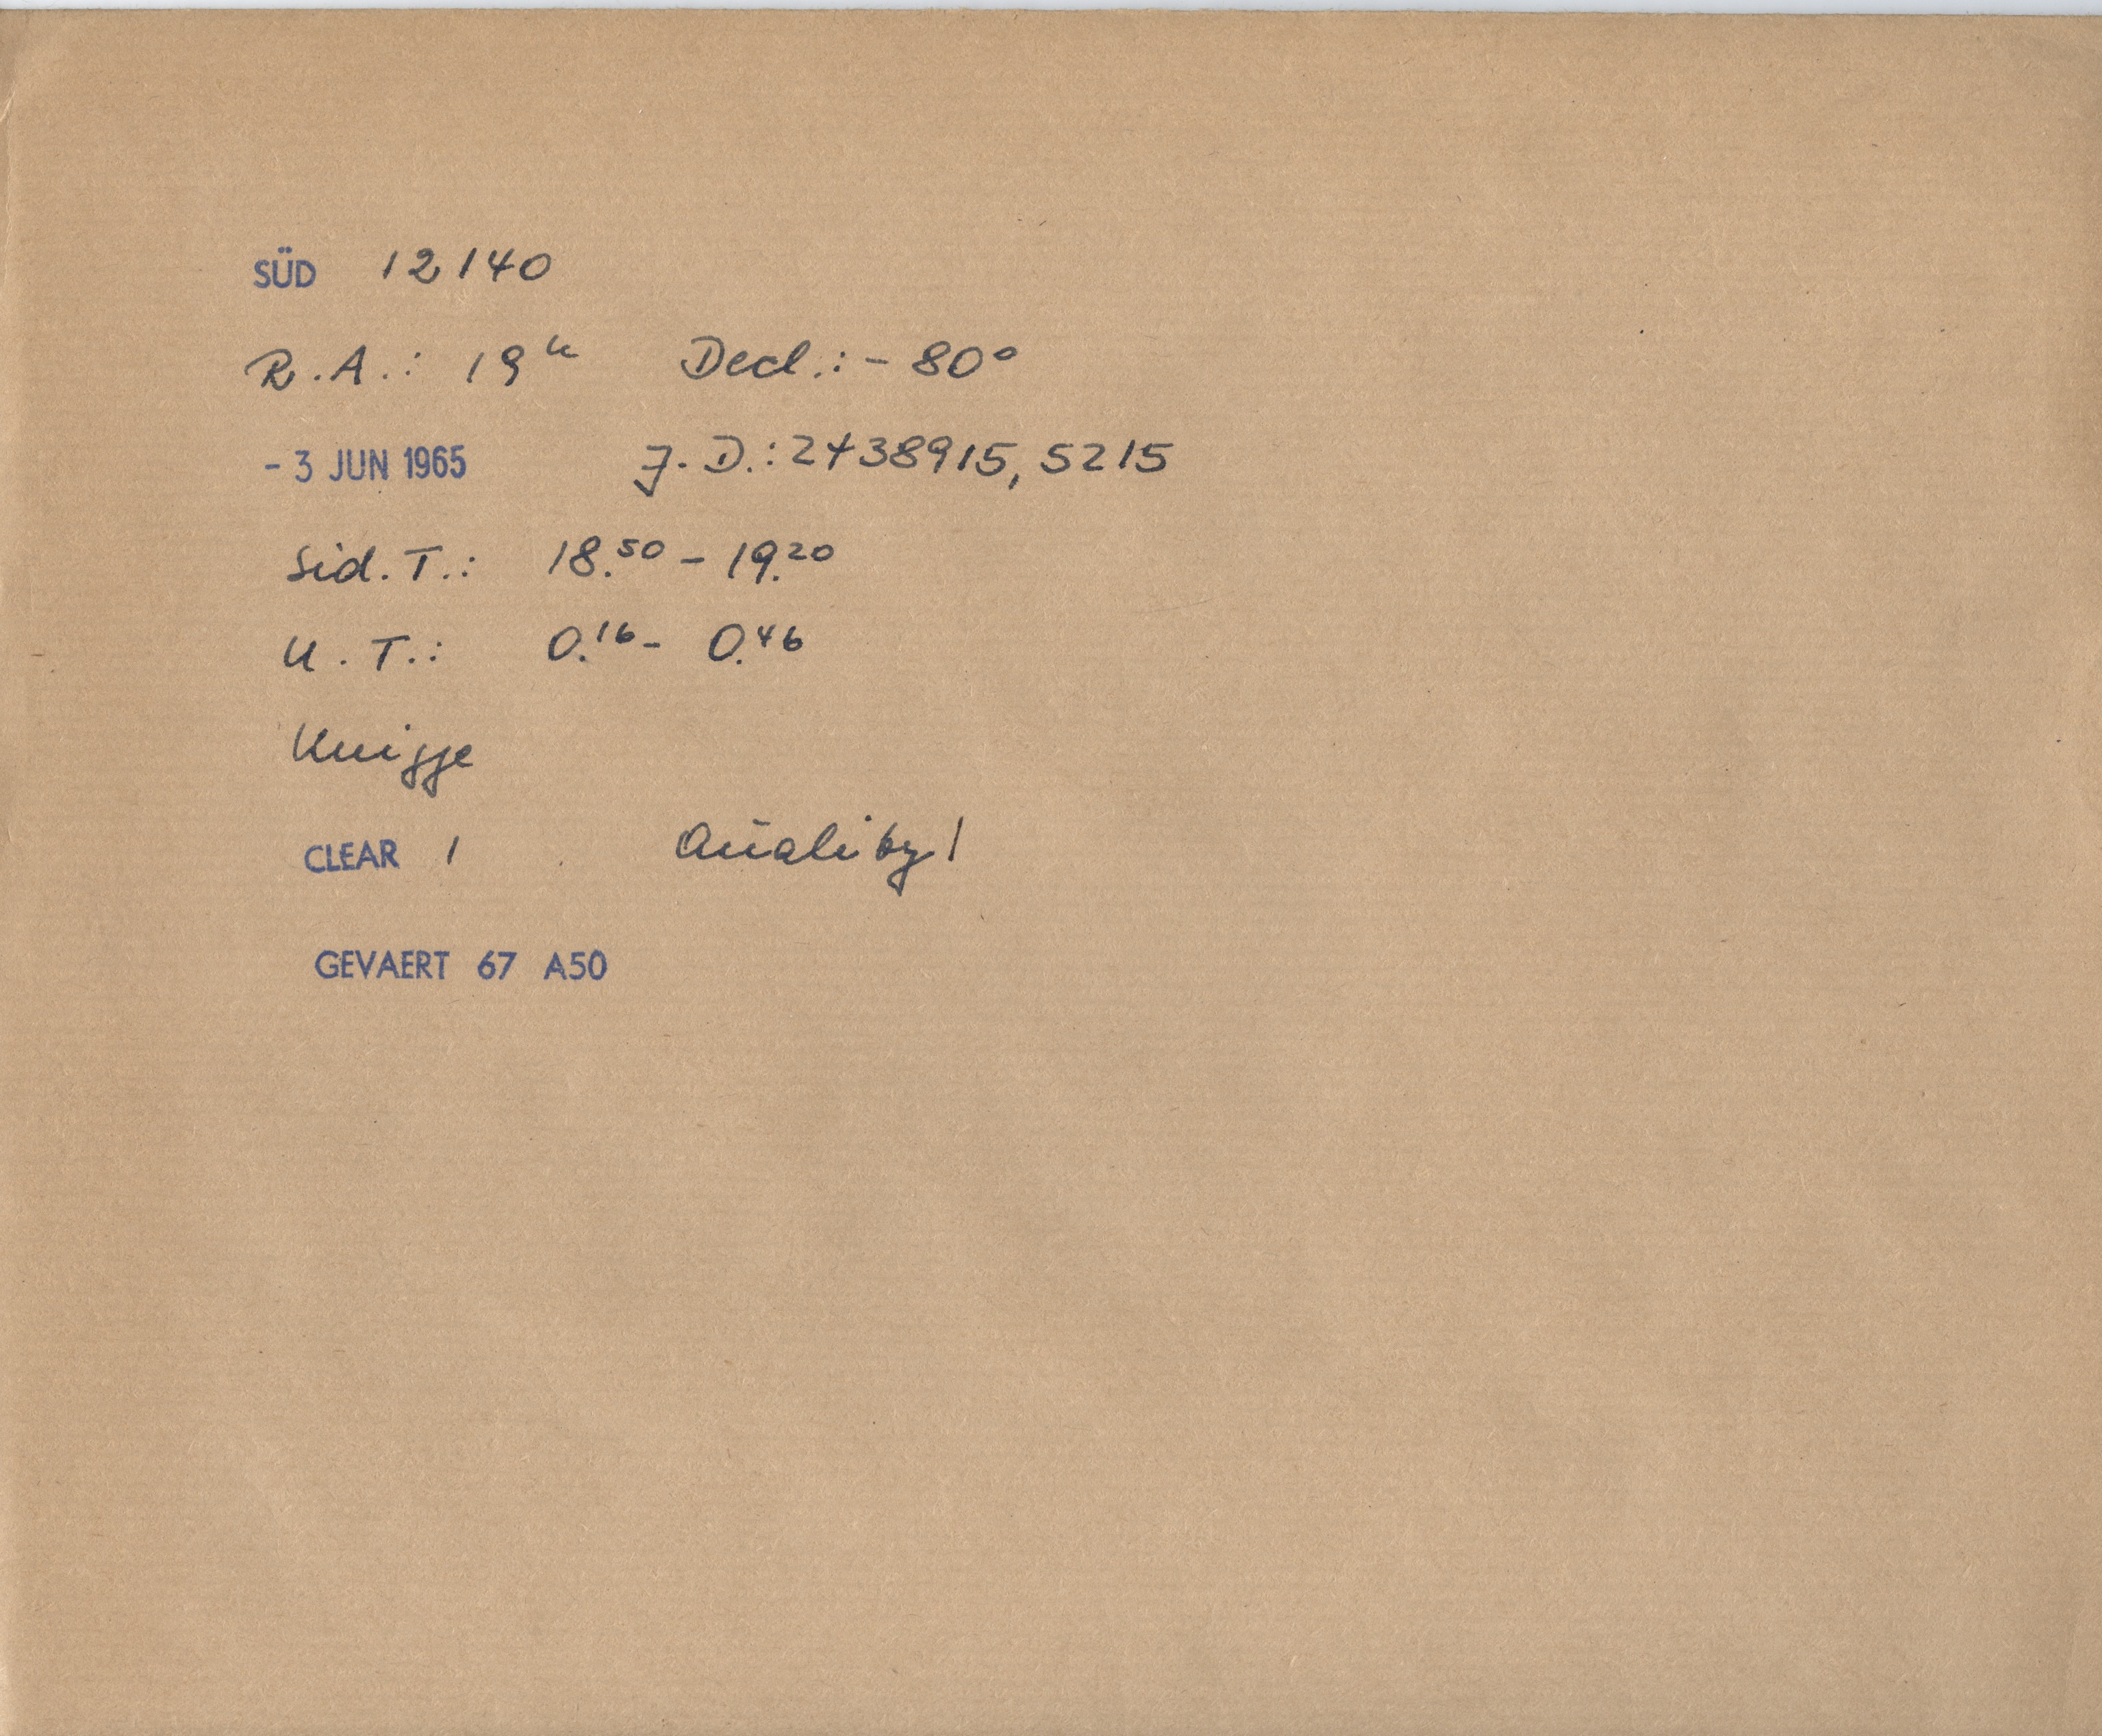 SÜD 12140
R.A.: 19ʰ Decl.: - 80°
- 3 JUN 1965 J.D.: 2438915,5215
Sid. T.: 18.⁵⁰ - 19.²⁰
U.T.: 0.¹⁶ - 0.⁴⁶
Knigge
CLEAR 1 Quality 1
GEVAERT 67 A50